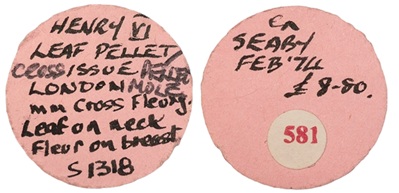 HENRY VI
LEAF PELLET
CROSS ISSUE PELLET
LONDON MOLE
mm Cross Fleury.
Leaf on neck
Fleur on breast
S 1318
Ex
SEABY
FEB '74
£ 8-80.
581